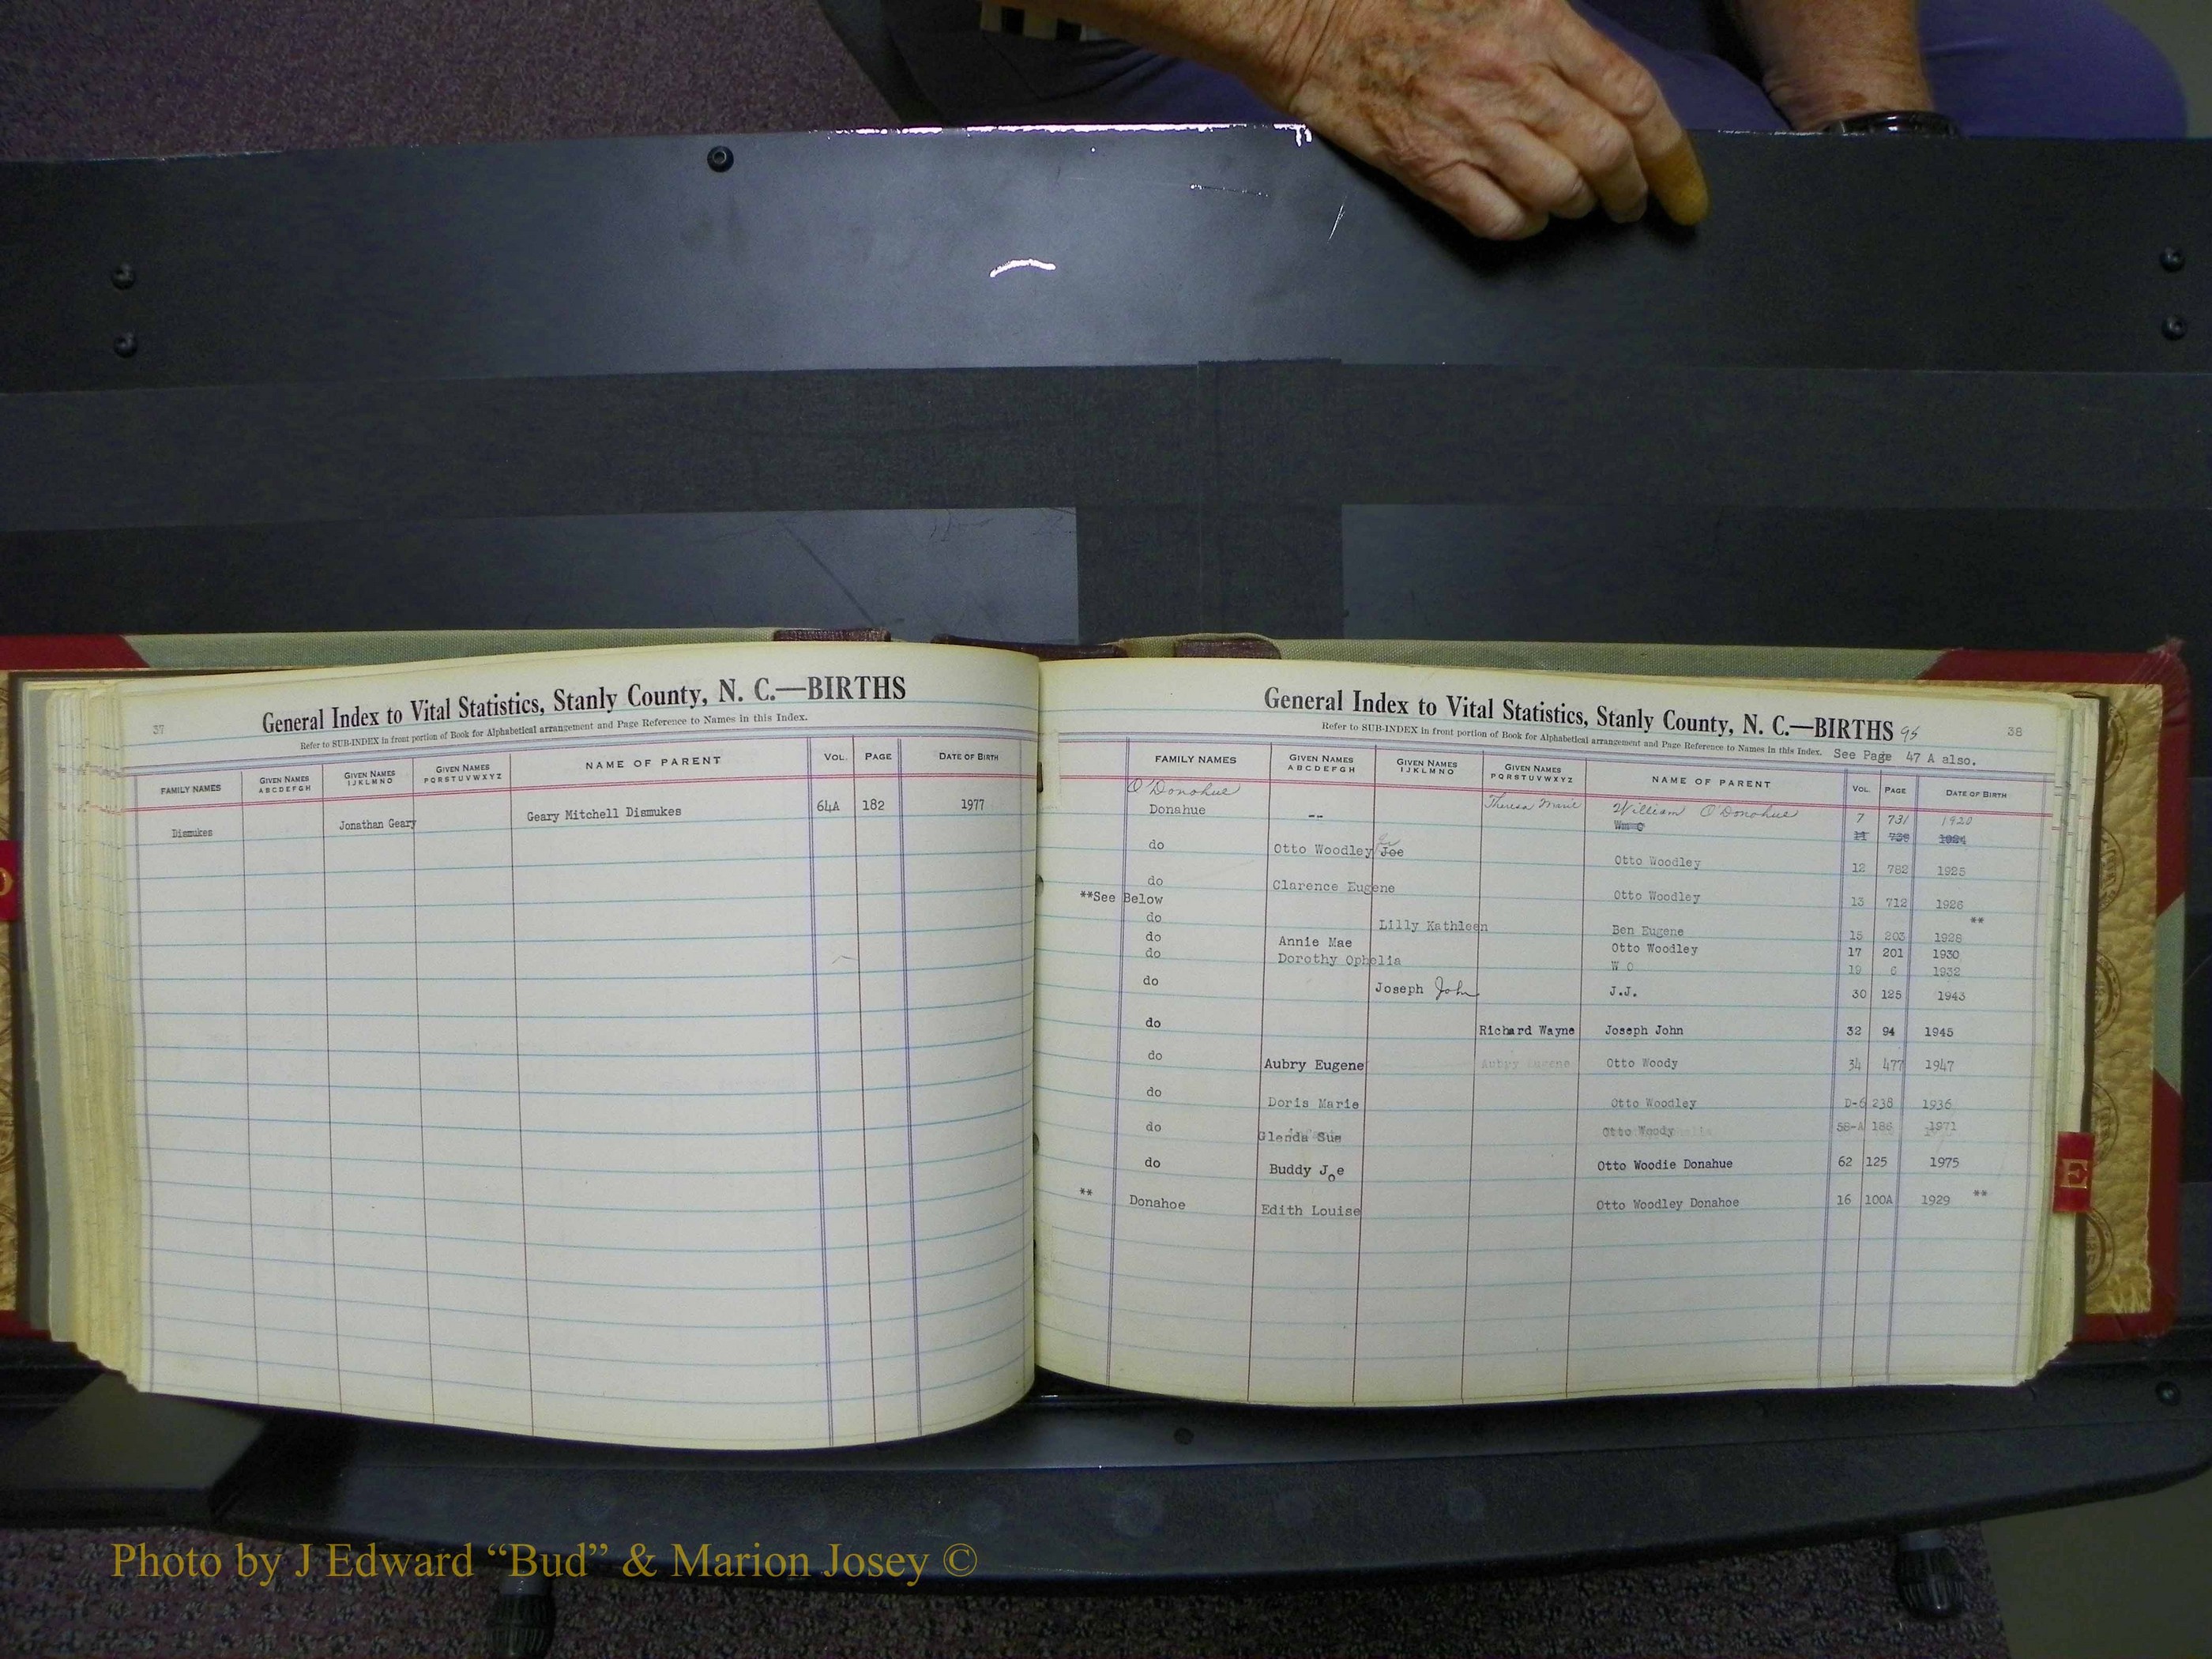 37
General Index to Vital Statistics, Stanly County, N. C.—BIRTHS
Refer to SUB-INDEX in front portion of Book for Alphabetical arrangement and Page Reference to Names in this Index.
FAMILY NAMES GIVEN NAMES ABCDEFGH GIVEN NAMES IJKLMNO GIVEN NAMES PQRSTUVWXYZ NAME OF PARENT VOL. PAGE DATE OF BIRTH
Dismukes Jonathan Geary Geary Mitchell Dismukes 64A 182 1977
General Index to Vital Statistics, Stanly County, N. C.—BIRTHS 95
38
Refer to SUB-INDEX in front portion of Book for Alphabetical arrangement and Page Reference to Names in this Index. See Page 47 A also.
FAMILY NAMES GIVEN NAMES ABCDEFGH GIVEN NAMES IJKLMNO GIVEN NAMES PQRSTUVWXYZ NAME OF PARENT VOL. PAGE DATE OF BIRTH
O'Donohue Theresa Marie William O'Donohue 7 731 1920
Donahue -- 1924
do Otto Woodley Joe Otto Woodley 12 782 1925
do Clarence Eugene Otto Woodley 13 712 1926
**See Below **
do Lilly Kathleen Ben Eugene 15 203 1928
do Annie Mae Otto Woodley 17 201 1930
do Dorothy Ophelia W O 19 6 1932
do Joseph John J.J. 30 125 1943
do Richard Wayne Joseph John 32 94 1945
do Aubry Eugene Aubry Eugene Otto Woody 34 477 1947
do Doris Marie Otto Woodley D-6 238 1936
do Glenda Sue Otto Woody 58-A 186 1971
do Buddy Joe Otto Woodie Donahue 62 125 1975
** Donahoe Edith Louise Otto Woodley Donahoe 16 100A 1929 **
E
Photo by J Edward “Bud” & Marion Josey ©